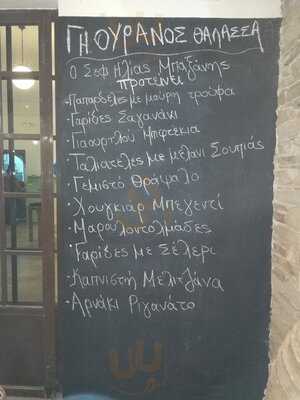 ΓΗ ΟΥΡΑΝΟΣ ΘΑΛΑΣΣΑ
Ο Σεφ Ηλίας Μπαζάνης
προτείνει
-Παπαρδέλες με μαύρη τρούφα
-Γαρίδες Σαγανάκι
-Γιαουρτλού Μπιφτέκια
-Ταλιατέλες με μελάνι Σουπιάς
-Γεμιστό Θράψαλο
-Χουγκιάρ Μπεγεντί
-Μαρουλοντολμάδες
-Γαρίδες με Σέλερι
-Καπνιστή Μελιτζάνα
-Αρνάκι Ριγανάτο